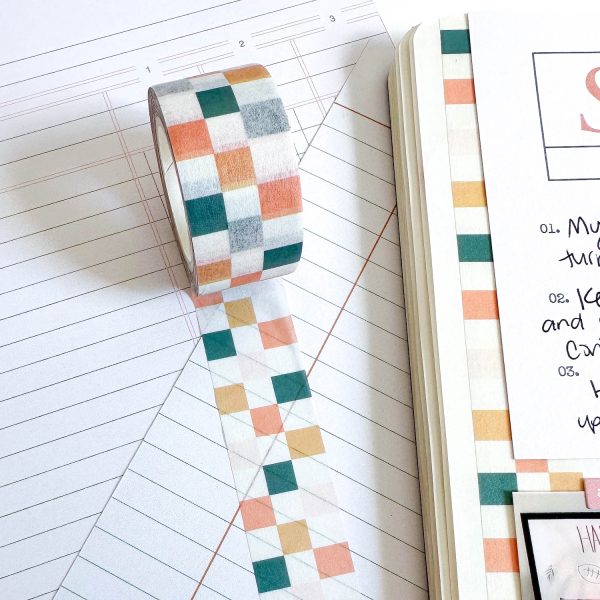 1
2
3
S
01. My
turn
02. Ke
and
Can
03.
H
up
HA